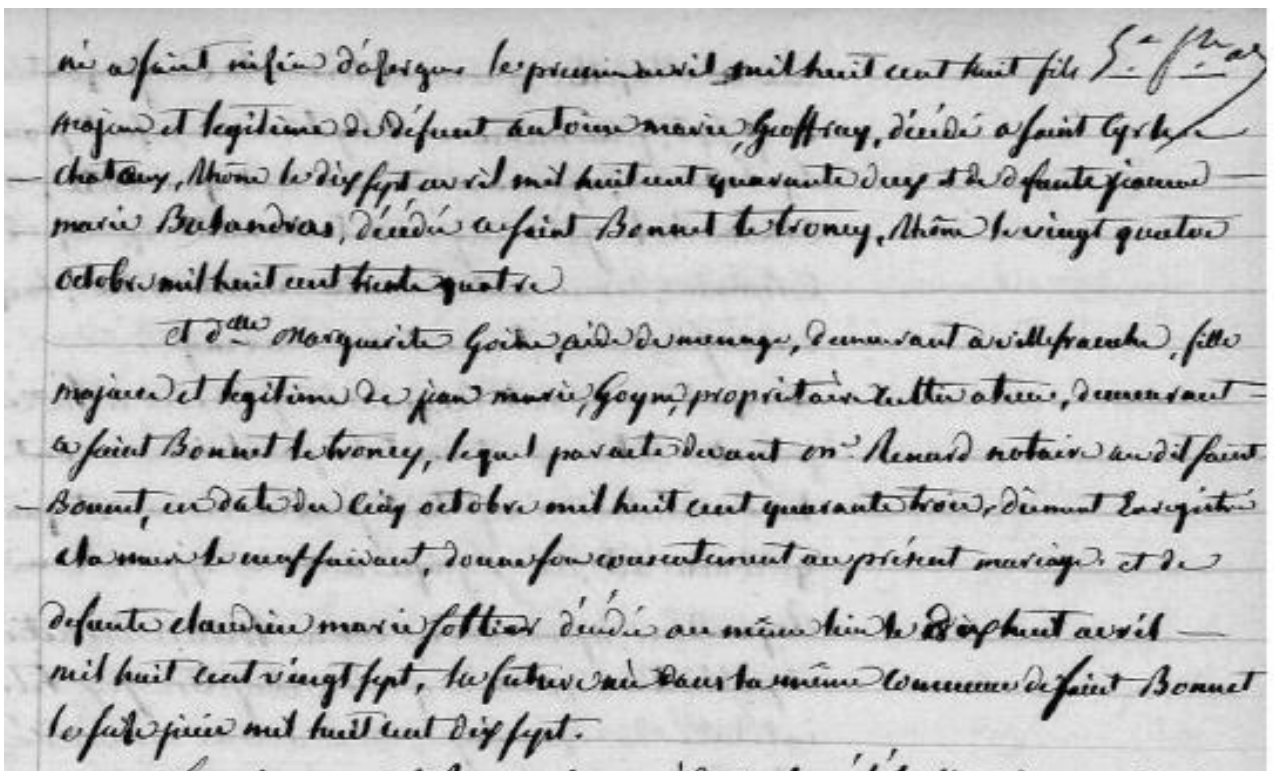 né a saint nisier d'asergue le premier avril mil huit cent huit fils
majeur et legitime de défunt antoine marie, Geoffray, décédé a saint Cyr le
chatoux, Rhône le dix sept avril mil huit cent quarante deux et de defunte jeanne
marie Buhandras, décédée a saint Bonnet le troncy, Rhône le vingt quatre
octobre mil huit cent trente quatre
et dlle Marguerite Goine, aide de menage, demeurant a villefranche, fille
majeure et legitime de jean marie, Goyne, propriétaire cultivateur, demeurant
a saint Bonnet le troncy, lequel par acte devant mr Renard notaire au dit saint
Bonnet, en date du cinq octobre mil huit cent quarante trois, dûment Enregistré
a la mure le neuf suivant, donne son consentement au présent mariage. et de
defunte claudine marie sottier décédée au même lieu le dix huit avril
mil huit cent vingt sept, la future née dans la même commune de saint Bonnet
le juin mil huit cent dix sept.